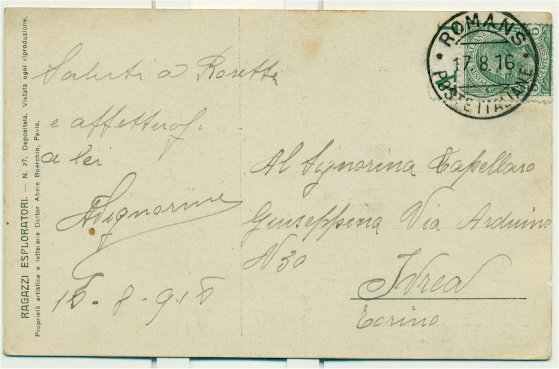 RAGAZZI ESPLORATORI. — N. 27. Depositata. Vietata ogni riproduzione.
Proprietà artistica e letteraria Dottor Abele Boerchio, Pavia.
Saluti a Rosetta
e affettuosi
a lei
15-8-916
ROMANS
17.8.16
POSTE ITALIANE
Al Signorina Capellaro
Giuseppina Via Arduino
N 30
Ivrea
Torino